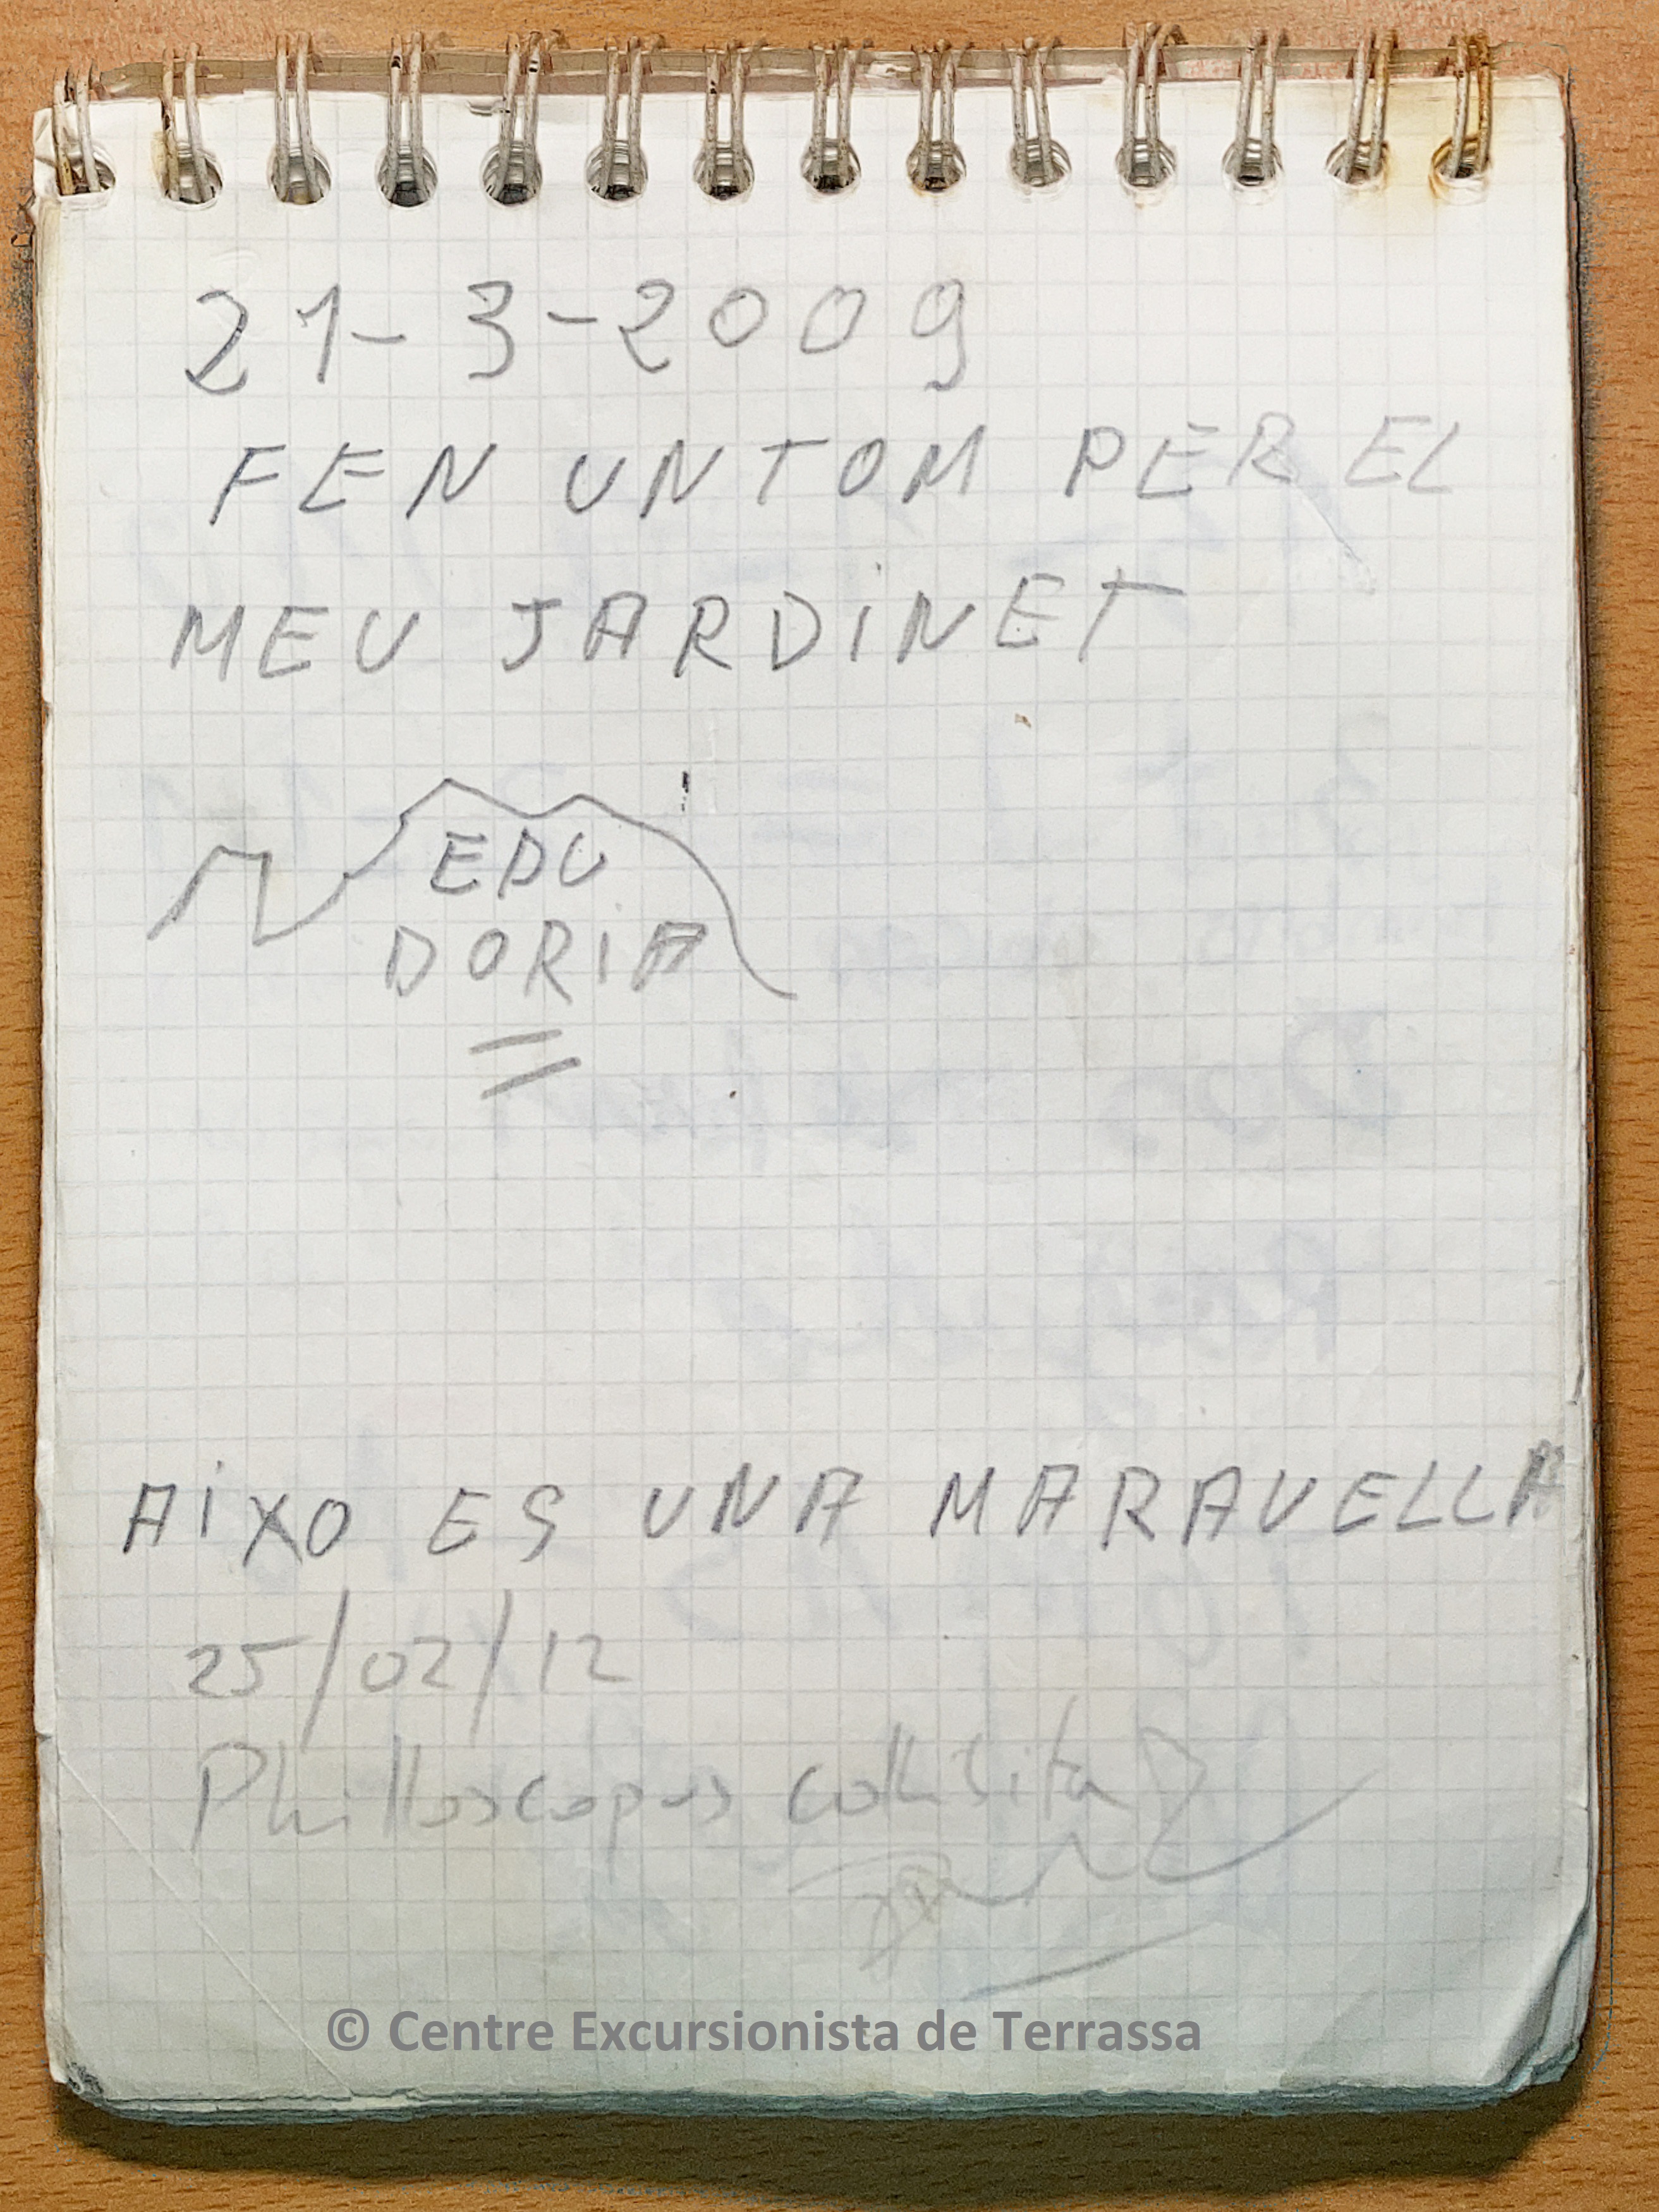 21-3-2009
FEN UN TOM PER EL
MEU JARDiNET
EDU
DORiA
AiXO ES UNA MARAVELLA
25/02/12
© Centre Excursionista de Terrassa